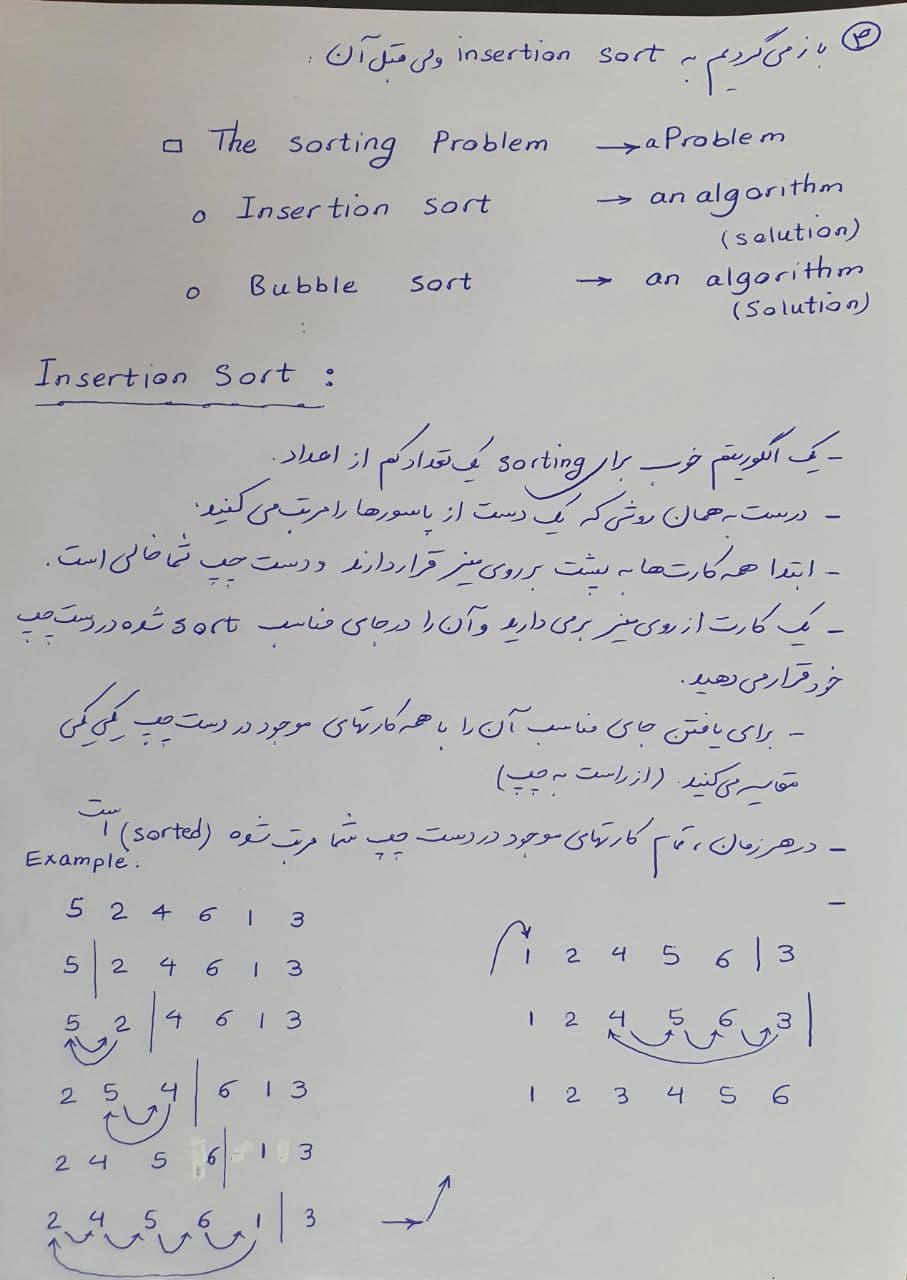 ③ باز می‌گردیم به insertion sort ولی قبل آن :
□ The sorting Problem → a Problem
o Insertion sort → an algorithm
(solution)
o Bubble sort → an algorithm
(Solution)
:
Insertion Sort :
- یک الگوریتم خوب برای sorting یک تعداد کم از اعداد.
- درست به همان روشی که یک دست از پاسورها را مرتب می‌کنید.
- ابتدا همه کارت‌ها به پشت بر روی میز قرار دارند و دست چپ شما خالی است.
- یک کارت از روی میز برمی‌دارید و آن را در جای مناسب sort شده در دست چپ
خود قرار می‌دهید.
- برای یافتن جای مناسب آن را با همه کارتهای موجود در دست چپ یکی یکی
مقایسه می‌کنید. (از راست به چپ)
- در هر زمان، تمام کارتهای موجود در دست چپ شما مرتب شده (sorted) است
-
Example:
5 2 4 6 1 3
5 | 2 4 6 1 3
5 2 | 4 6 1 3
2 5 4 | 6 1 3
2 4 5 6 | 1 3
2 4 5 6 1 | 3 →
1 2 4 5 6 | 3
1 2 4 5 6 3 |
1 2 3 4 5 6